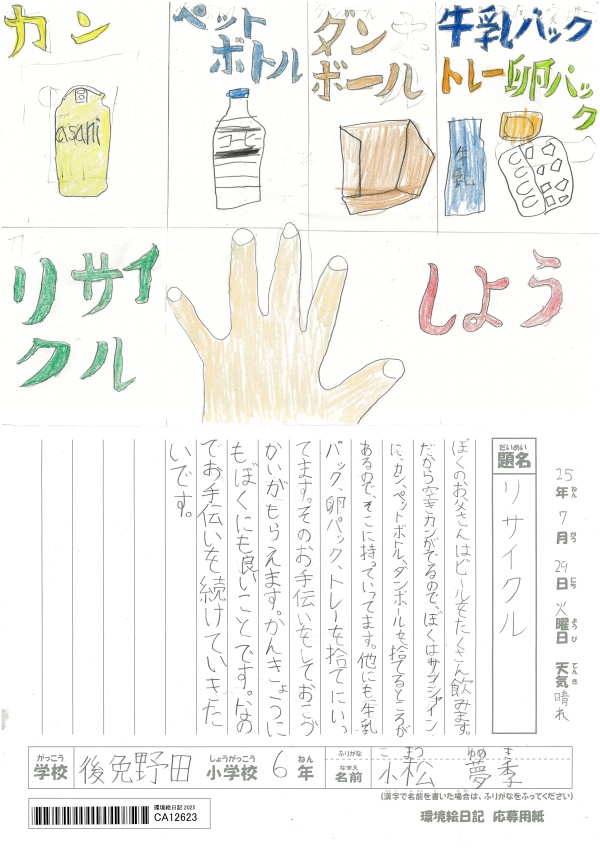 カン
ペット
ボトル
ダン
ボール
牛乳パック
トレー卵パック
asahi
コーヒー
牛乳
リサイ
クル
しよう
25年7月29日火曜日 天気晴れ
ねん がつ にち ようび てんき
だいめい
題名
リサイクル
ぼくのお父さんはビールをたくさん飲みます。
だから空きカンがでるので、ぼくはサンシャイン
に、カン、ペットボトル、ダンボールを捨てるところが
あるので、そこに持っていってます。他にも、牛乳
パック、卵パック、トレーを捨てにいっ
てます。そのお手伝いをしておこづ
かいがもらえます。かんきょうに
もぼくにも良いことです。なの
でお手伝いを続けていきた
いです。
がっこう
学校
後免野田
しょうがっこう
小学校
6
ねん
年
ふりがな
こまつ ゆめき
なまえ
名前
小松 夢季
(漢字で名前を書いた場合は、ふりがなをふってください)
環境絵日記 2025
CA12623
環境絵日記 応募用紙